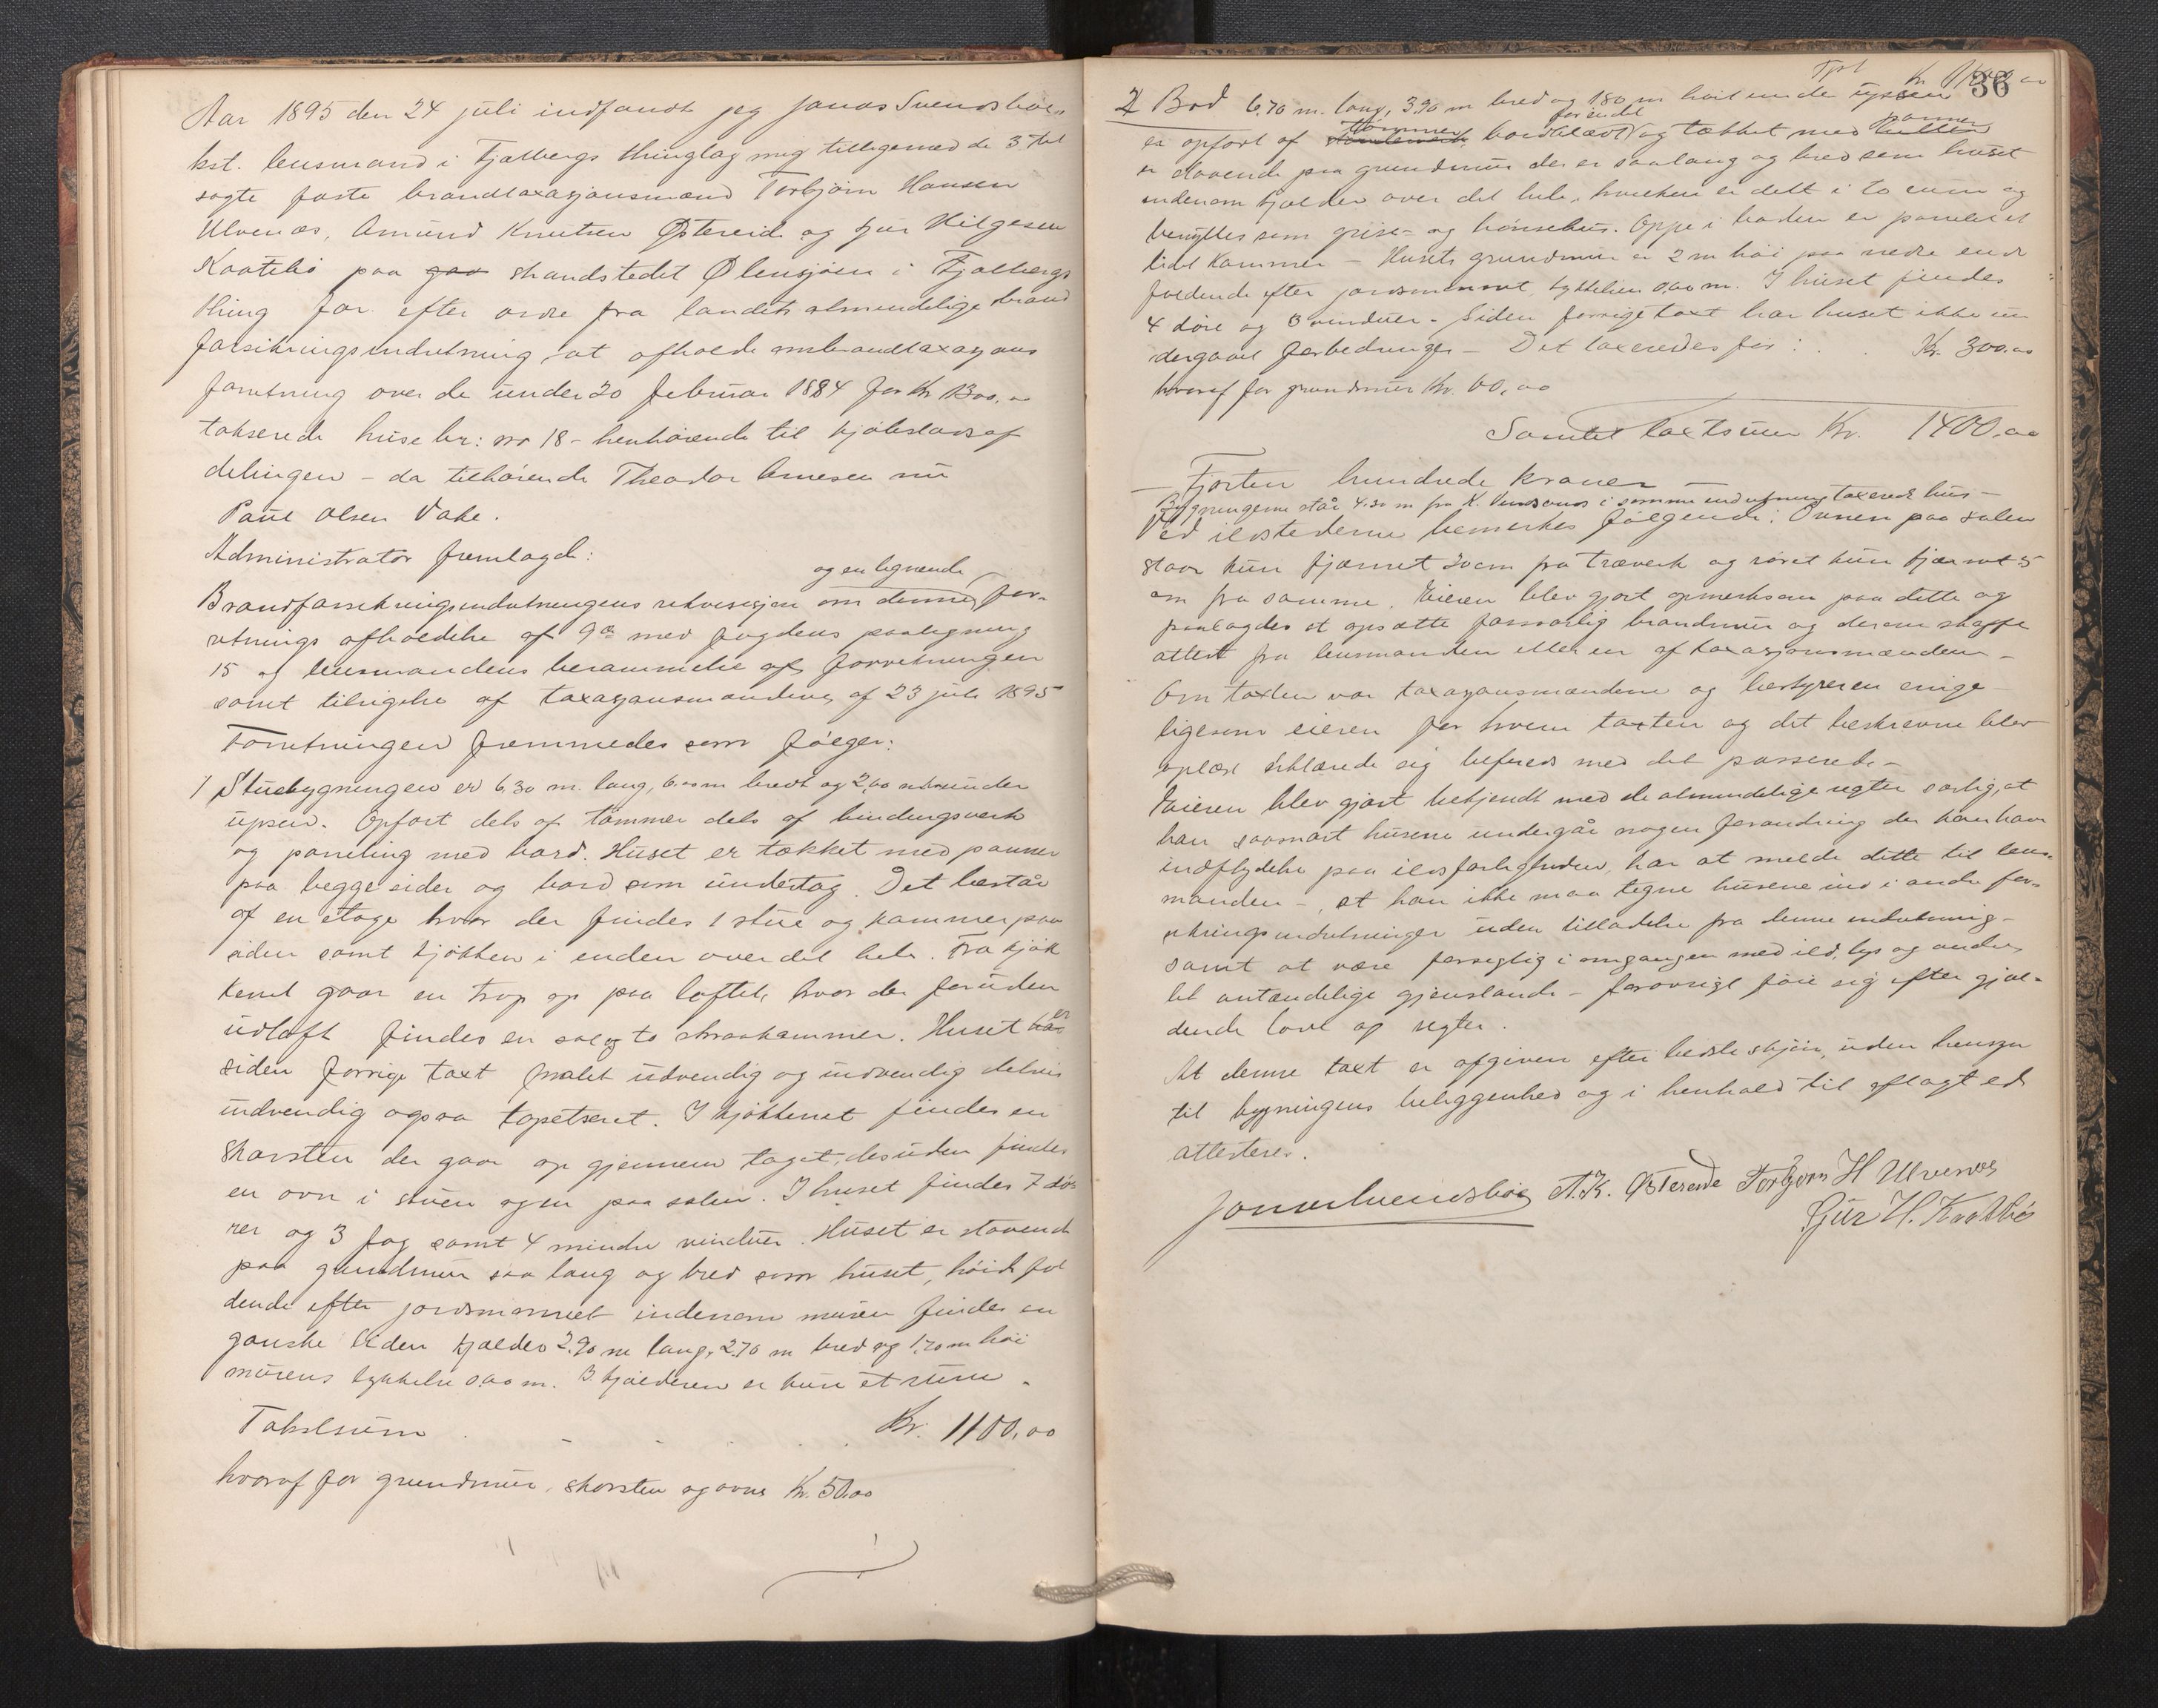 Aar 1895 den 24 juli indfandt jeg Jonas Svendsboe,
kst. lensmand i Fjælbergs thinglag mig tilligemed de 3 til
sagte faste brandtaxasjonsmænd Torbjørn Hansen
Ulvenæs, Amund Knutsen Østereide og Gjur Helgesen
Kaatebø paa gaa strandstedet Ølensjøen i Fjælbergs
thing for efter ordre fra landets almindelige brand
forsikringsindretning at afholde ombrandtaxasjons
forretning over de under 20 februar 1884 for Kr 1300,00
takserede huse br: no 18 - henhørende til kjøbstadsaf
delingen - da tilhørende Theodor Arnesen nu
Paul Olsen Vake.
Administrator fremlagde:
og en lignende
Brandforsikringsindretningens rekvisisjon om denne for-
retnings afholdelse af 9de med fogdens paategning
15 og lensmandens berammelse af forretningen
samt tilsigelse af taxasjonsmændene af 23 juli 1895
Forretningen fremmedes som følger:
1 Stuebygningen er 6,30 m. lang, 6,00 m bredt og 2,60 m under
upsen. Opført dels af tømmer dels af bindingsverk
og paneling med bord. Huset er tækket med panner
paa begge sider og bord som undertag. Det består
af en etage hvor der findes 1 stue og kammer paa
siden samt kjøkken i enden over det hele. Fra kjøk
kenet gaar en trap op paa loftet, hvor der foruden
udloft findes en sal og to skraakammer. Huset har er
siden forrige taxt malet udvendig og indvendig delvis
indvendig ogsaa tapetseret. I kjøkkenet findes en
skorsten der gaar op gjennem taget, desuden findes
en ovn i stuen og en paa salen. I huset findes 7 dø
rer og 3 fag samt 4 mindre vinduer. Huset er staaende
paa grundmur saa lang og bred som huset, høide fal
dende efter jordsmonnet indenom muren findes en
ganske liden kjælder 2.90 m lang, 2.70 m bred og 1.70 m høi
murens tykkelse 0,60 m. I kjælderen er kun et rum.
Takstsum Kr. 1100,00
hvoraf for grundmur, skorsten og ovne Kr. 50.00
36
Tpt Kr.
2 Bod 6,70 m. lang, 3.90 m bred og 1.80 m høi under upsen
tømmer forsidet panner
er opført af bordklædt og tækket med
er staaende paa grundmur der er saa lang og bred som huset
indenom kjælder over det hele, hvilken er delt i to rum og
benyttes som grise- og hønsehus. Oppe i boden er paneleret
lidet kammer - Husets grundmur er 2 m høi paa nedre ende
faldende efter jordsmonnet, tykkelsen 0,60 m. I huset findes
4 døre og 3 vinduer. Siden forrige taxt har huset ikke un
dergaaet forbedringer - Det taxeredes for: Kr. 300.00
hvoraf for grundmur Kr. 60,00
Samlet taxtsum Kr. 1400,00
- Fjorten hundrede kroner -
Bygningerne står 4.30 m fra K. i samme indretning taxerede hus -
Ved ildstederne bemerkes følgende: Ovnen paa salen
staar kun fjærnet 20 cm fra træverk og røret kun fjærnet 5
cm fra samme. Eieren blev gjort opmerksom paa dette og
paalagdes at opsætte forsvarlig brandmur og derom skaffe
attest fra lensmanden eller en af taxasjonsmændene -
Om taxten var taxasjonsmændene og bestyreren enige -
ligesom eieren for hvem taxten og det beskrevne blev
oplæst erklærede sig tilfreds med det passerede -
Eieren blev gjort bekjendt med de almindelige regler særlig, at
han saasnart husene undergår nogen forandring der kan have
indflydelse paa ildsfarligheden, har at melde dette til lens-
manden -, at han ikke maa tegne husene ind i andre for-
sikringsindretninger uden tilladelse fra denne indretning -
samt at være forsigtig i omgangen med ild, lys og andre
let antændelige gjenstande - forøvrigt føie sig efter gjæl-
dende love og regler.
At denne taxt er afgiven efter bedste skjøn, uden hensyn
til bygningens beliggenhed og i henhold til aflagt ed
attesteres.
Jonas Svendsboe A.K. Østereide Torbjørn H Ulvenæs
Gjur H. Kaatebø